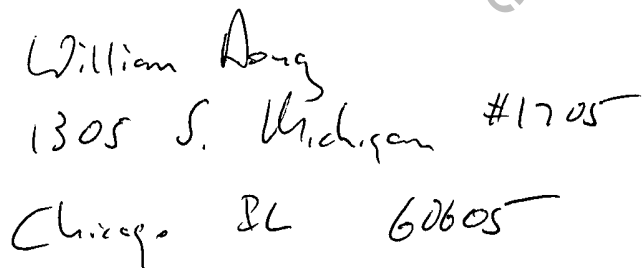 William
1305 S. Michigan #1705
Chicago IL 60605